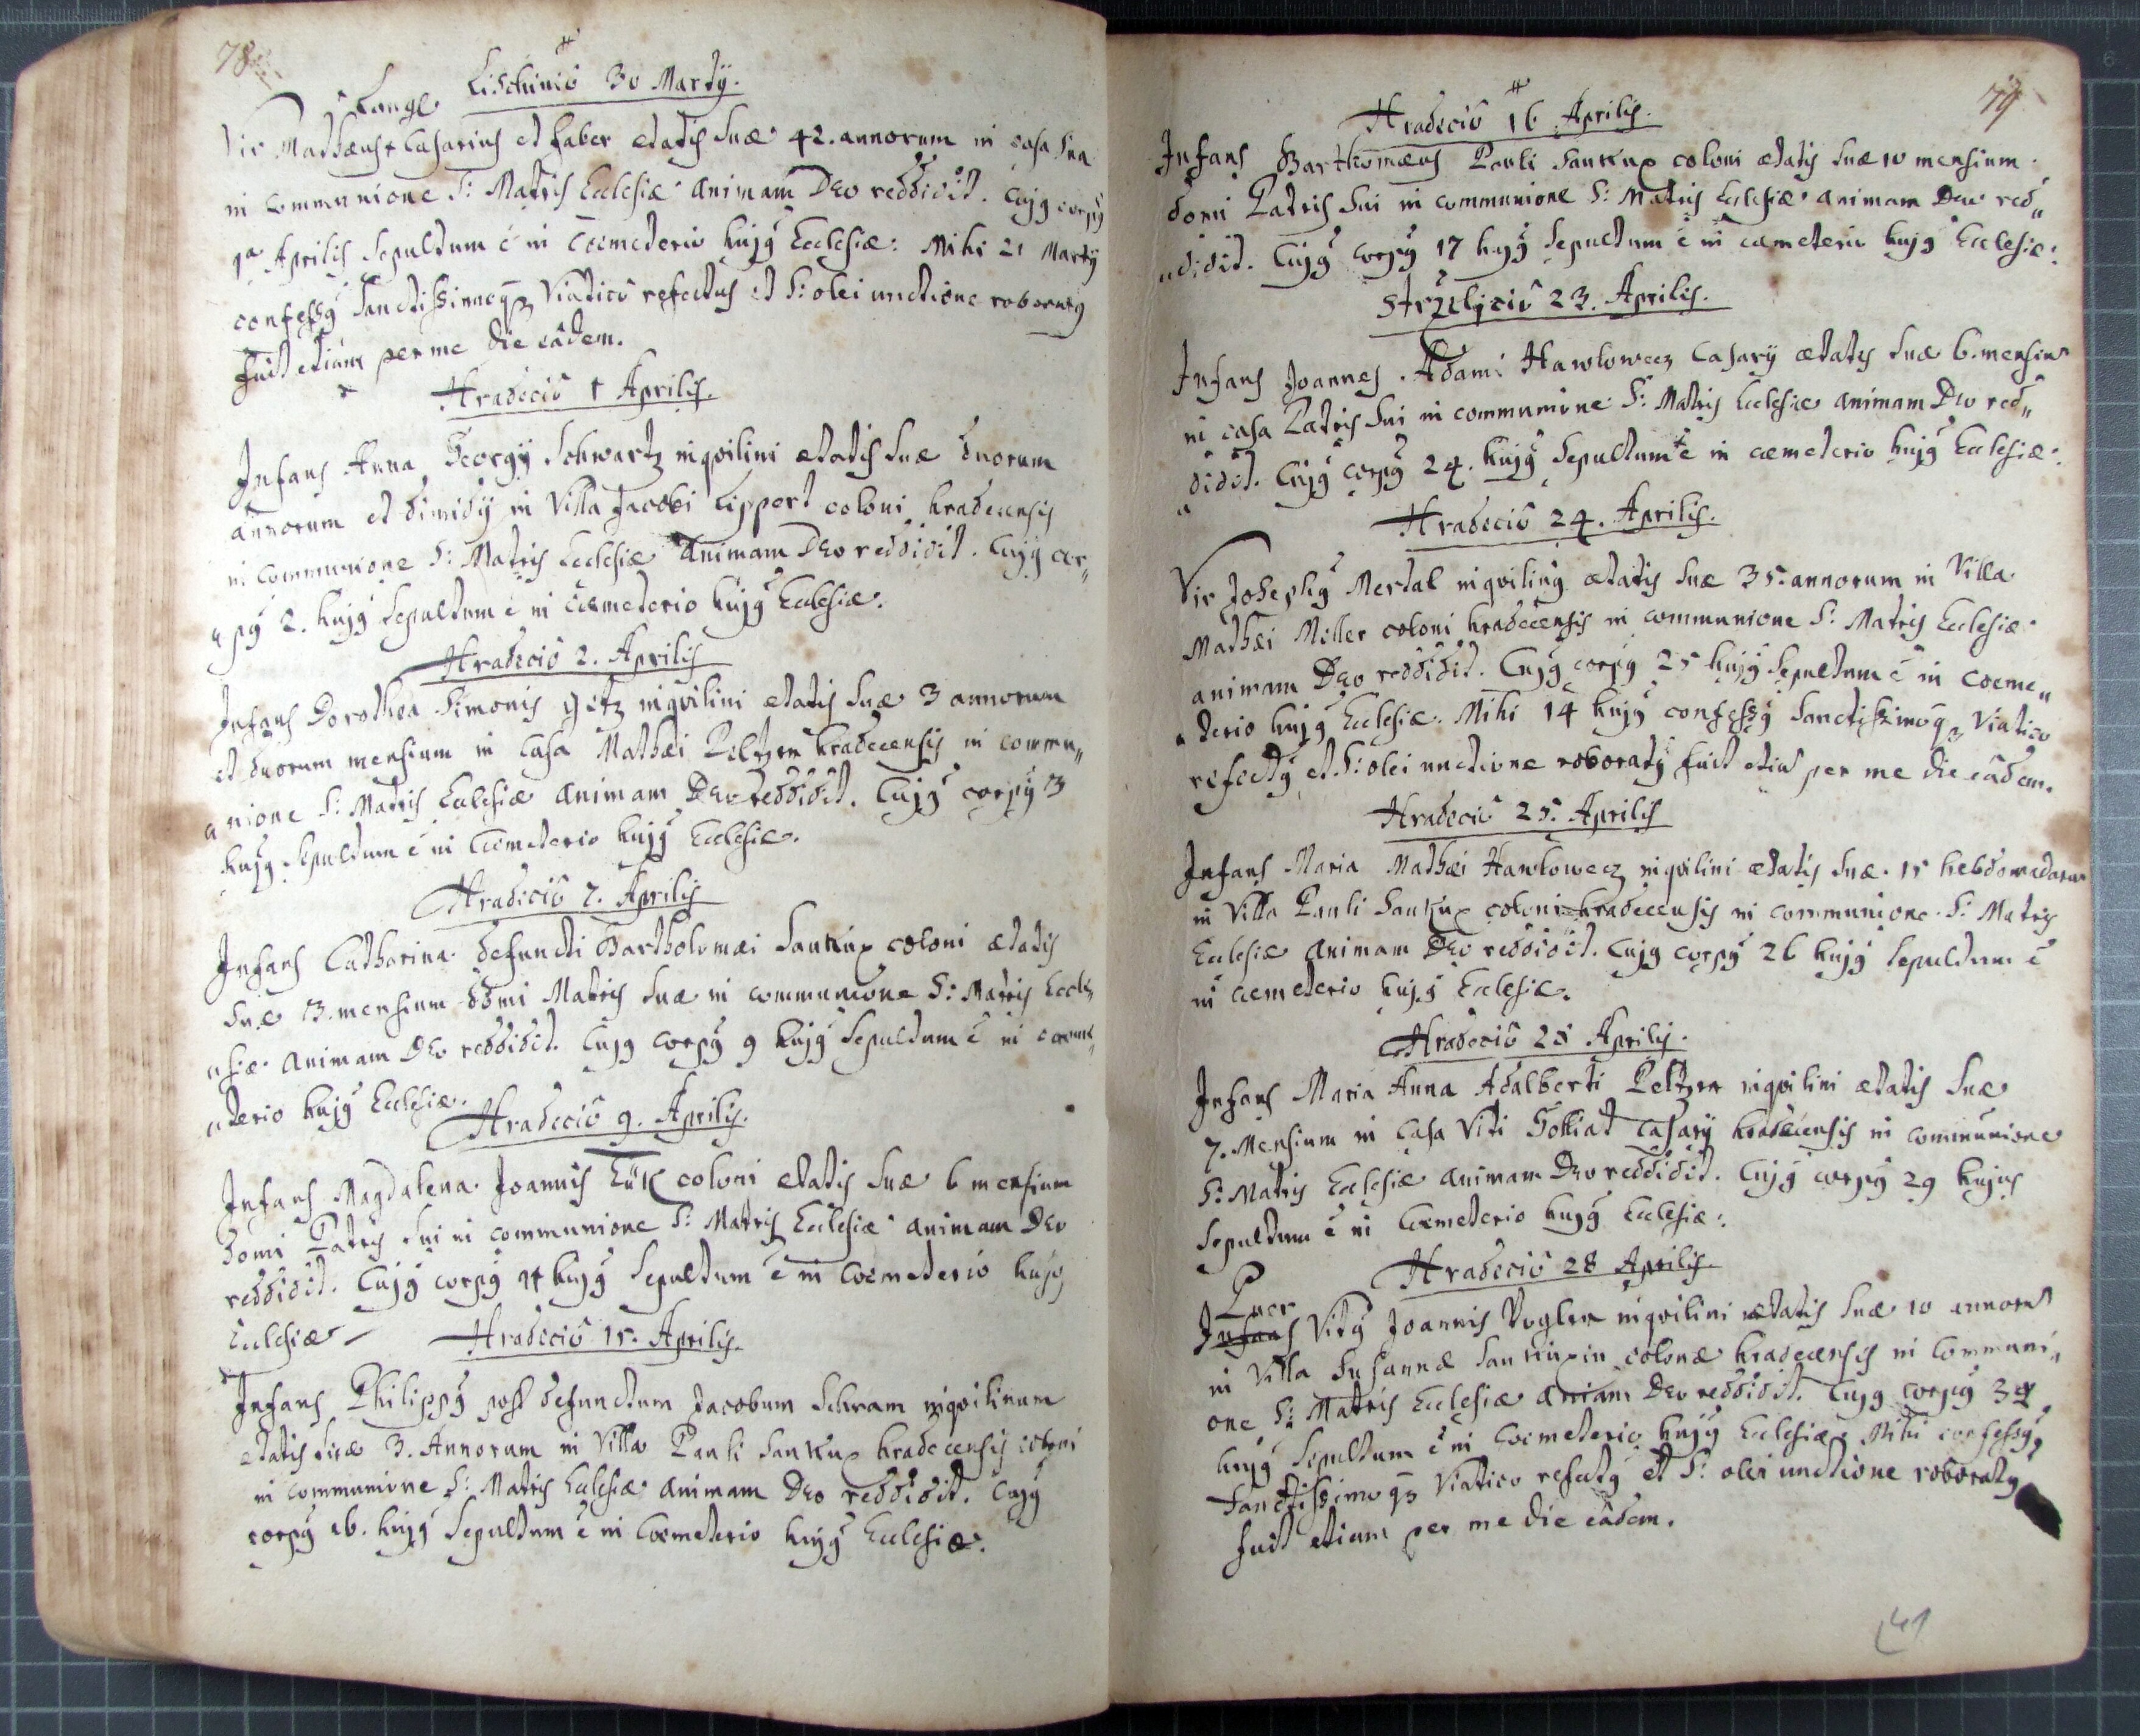 78
Lischiniô 30 Martÿ.
Kongl
Vir Mathæus Casarius et faber ætatis suæ 42. annorum in casa sua
in communione S: Matris Ecclesiæ animam Deo reddidit. Cujg corpg
1ª Aprilis sepultum ẽ in Coemeterio hujg Ecclesiæ. Mihi 21 Martÿ
confessg sanctissimoq3 Viaticô refectus et S: olei unctione roboratg
fuit etiam per me die eâdem.
Hradeciô 1 Aprilis.
Infans Anna Georgÿ Schwartz inqvilini ætatis suæ duorum
annorum et dimidÿ in Villa Jacobi Lippert coloni hradecensis
in communione S: Matris Ecclesiæ animam Deo reddidit. Cujg cor„
„pg 2. hujg sepultum ẽ in Coemeterio hujg Ecclesiæ.
Hradeciô 2. Aprilis
Infans Dorothea Simonis Götz inqvilini ætatis suæ 3 annorum
et duorum mensium in Casa Mathæi Peltzen hradecensis in commu„
„nione S: Matris Ecclesiæ animam Deo reddidit. Cujg corpg 3
hujg sepultum ẽ in Coemeterio hujg Ecclesiæ.
Hradeciô 7. Aprilis
Infans Catharina defuncti Bartholomæi Saukup coloni ætatis
suæ 13. mensium domi Matris suæ in communione S: Matris Eccle„
„siæ animam Deo reddidit. Cujg corpg 9 hujg sepultum ẽ in coeme„
„terio hujg Ecclesiæ.
Hradeciô 9. Aprilis.
Infans Magdalena Joannis Lük coloni ætatis suæ 6 mensium
domi Patris sui in communione S: Matris Ecclesiæ animam Deo
reddidit. Cujg corpg 11 hujg sepultum ẽ in Coemeterio hujg
Ecclesiæ
Hradeciô 15. Aprilis.
Infans Philippg post defunctum Jacobum Schram inqvilinum
ætatis suæ 3. Annorum in Villa Pauli Saukup hradecensis coloni
in communione S: Matris Ecclesiæ animam Deo reddidit. Cujg
corpg 16. hujg sepultum ẽ in Coemeterio hujg Ecclesiæ.
79
Hradeciô 16 Aprilis.
Infans Bartholomæus Pauli Saukup coloni ætatis suæ 10 mensium
domi Patris sui in communione S: Matris Ecclesiæ animam Deo red„
„didit. Cujg corpg 17 hujg sepultum ẽ in cæmeterio hujg Ecclesiæ.
Strzelyciô 23. Aprilis.
Infans Joannes Adami Hawlowecz Casarÿ ætatis suæ 6. mensiũ
in casa Patris sui in communione S: Matris Ecclesiæ animam Deo red„
„didit. Cujg corpg 24. hujg sepultum ẽ in cæmeterio hujg Ecclesiæ.
Hradeciô 24. Aprilis.
Vir Josephg Mertal inqviling ætatis suæ 35. annorum in Villa
Mathæi Miller coloni hradecensis in communione S: Matris Ecclesiæ
animam Deo reddidit. Cujg corpg 25 hujg sepultum ẽ in Coeme„
„terio hujg Ecclesiæ. Mihi 14 hujg confessg sanctissimoq3 Viatico
refectg et S: olei unctione roboratg fuit etiã per me die eâdem.
Hradeciô 25. Aprilis
Infans Maria Mathæi Hawlowecz inqvilini ætatis suæ 15 hebdomadarum
in Villa Pauli Saukup coloni hradecensis in communione S: Matris
Ecclesiæ animam Deo reddidit. Cujg corpg 26 hujg sepultum ẽ
in Cæmeterio hujg Ecclesiæ.
Hradeciô 28 Aprilis.
Infans Maria Anna Adalberti Peltzen inqvilini ætatis suæ
7. Mensium in Casa Viti Golliat Casarÿ hradecensis in communione
S: Matris Ecclesiæ animam Deo reddidit. Cujg corpg 29 hujus
sepultum ẽ in Coemeterio hujg Ecclesiæ.
Hradeciô 28 Aprilis.
Puer
Infans Vitg Joannis Voglen inqvilini ætatis suæ 10 annorũ
in Villa Susannæ Saukupin colonæ hradecensis in Communi„
one S: Matris Ecclesiæ aniam Deo reddidit. Cujg corpg 30
hujg sepultum ẽ in Coemeterio hujg Ecclesiæ. Mihi confessg,
sanctissimoq3 Viatico refectg et S: olei unctione roboratg
fuit etiam per me die eâdem.